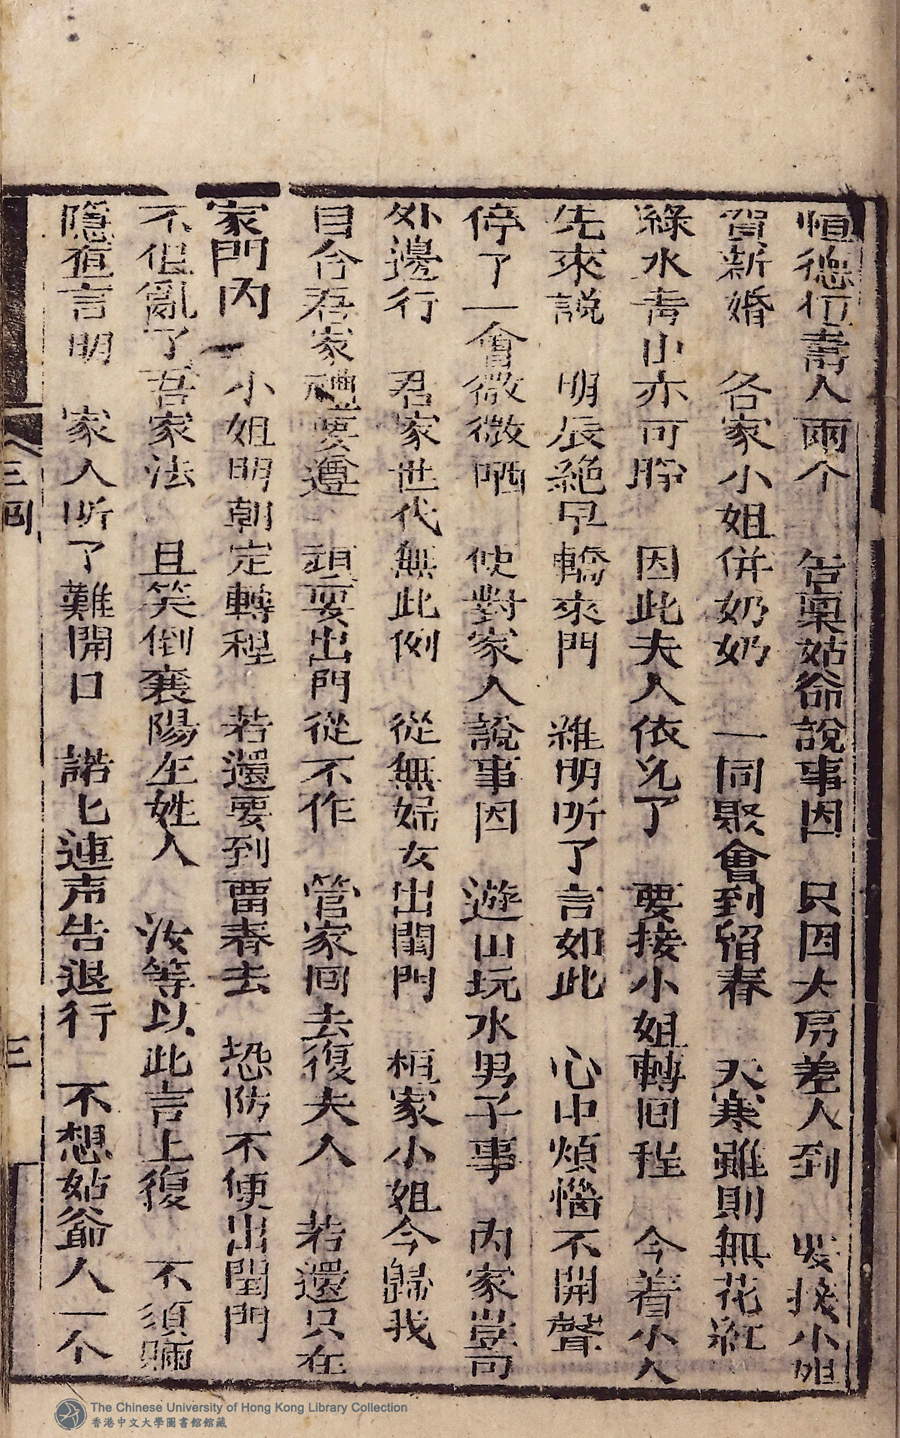 恒德恒壽人兩个　告禀姑爺說事因　只因大房差人到　要接小姐
賀新婚　各家小姐併奶奶　一同聚會到留春　天寒雖則無花紅
綠水青山亦可聆　因此夫人依允了　要接小姐轉回程　今着小人
先來說　明辰絕早轎來門　維明听了言如此　心中煩惱不開聲
停了一會微微哂　使對家人說事因　遊山玩水男子事　內家豈可
外邊行　君家世代無此例　從無婦女出閨門　桓家小姐今歸我
目合吾家禮要遵　頭要出門從不作　管家回去復夫人　若還只在
家門內　小姐明朝定轉程　若還要到畱春去　恐防不便出閨門
不但亂了吾家法　且笑倒襄陽左姓人　汝等以此言上復　不須瞞
隱宜言明　家人听了難開口　諾匕連声告退行　不想姑爺人一个
三回
三
The Chinese University of Hong Kong Library Collection
香港中文大學圖書館館藏